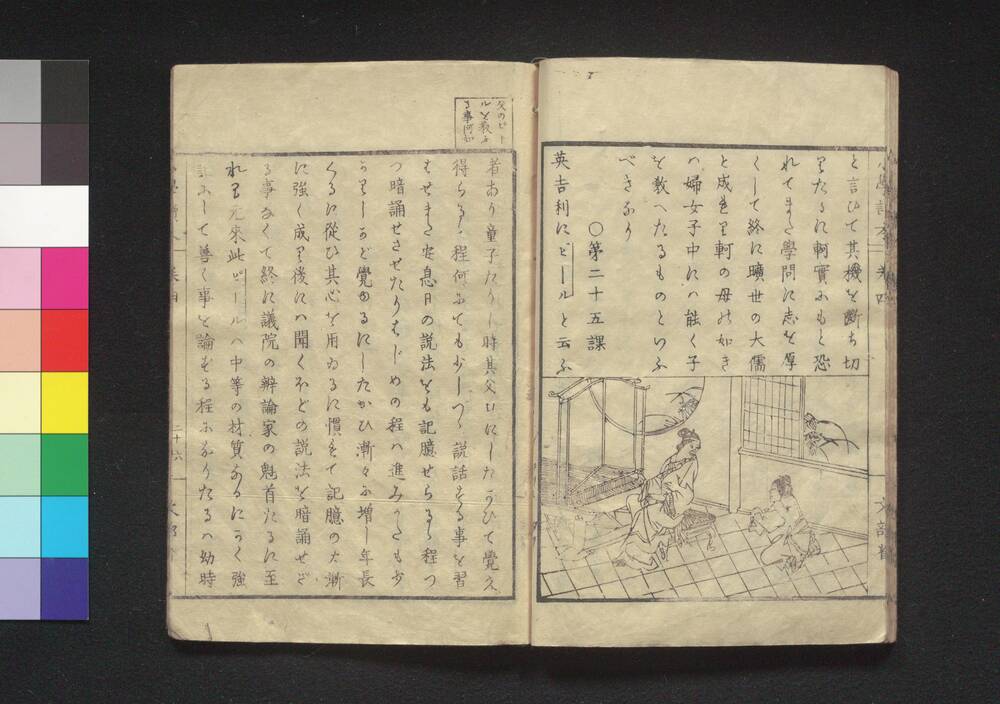 と言ひて其機を断ち切
りたるに軻實にもと恐
れてまた學問に志を厚
くして終に曠世の大儒
と成れり軻の母の如き
ハ婦女子中にハ能く子
を教へたるものといふ
べきなり
○第二十五課
英吉利にピールと云ふ
父のピー
ルを教ふ
る事何如
者あり童子たりし時其父ひにしたがひて覚え
得らるゝ程何にても少しづゝ説話する事を習
はせまた安息日の説法をも記臆せらるゝ程づ
つ暗誦させたりはじめの程ハ進みかたも少
かりしかど覚ゆるにしたがひ漸々に増し年長
くるに従ひ其心を用ゐるに慣れて記臆の力漸
に強く成り後にハ聞くほどの説法を暗誦せざ
る事なくて終に議院の辨論家の魁首たるに至
れり元來此ピールハ中等の材質なるにかく強
記にして善く事を論ずる程になりたるハ幼時
二十六
文部省